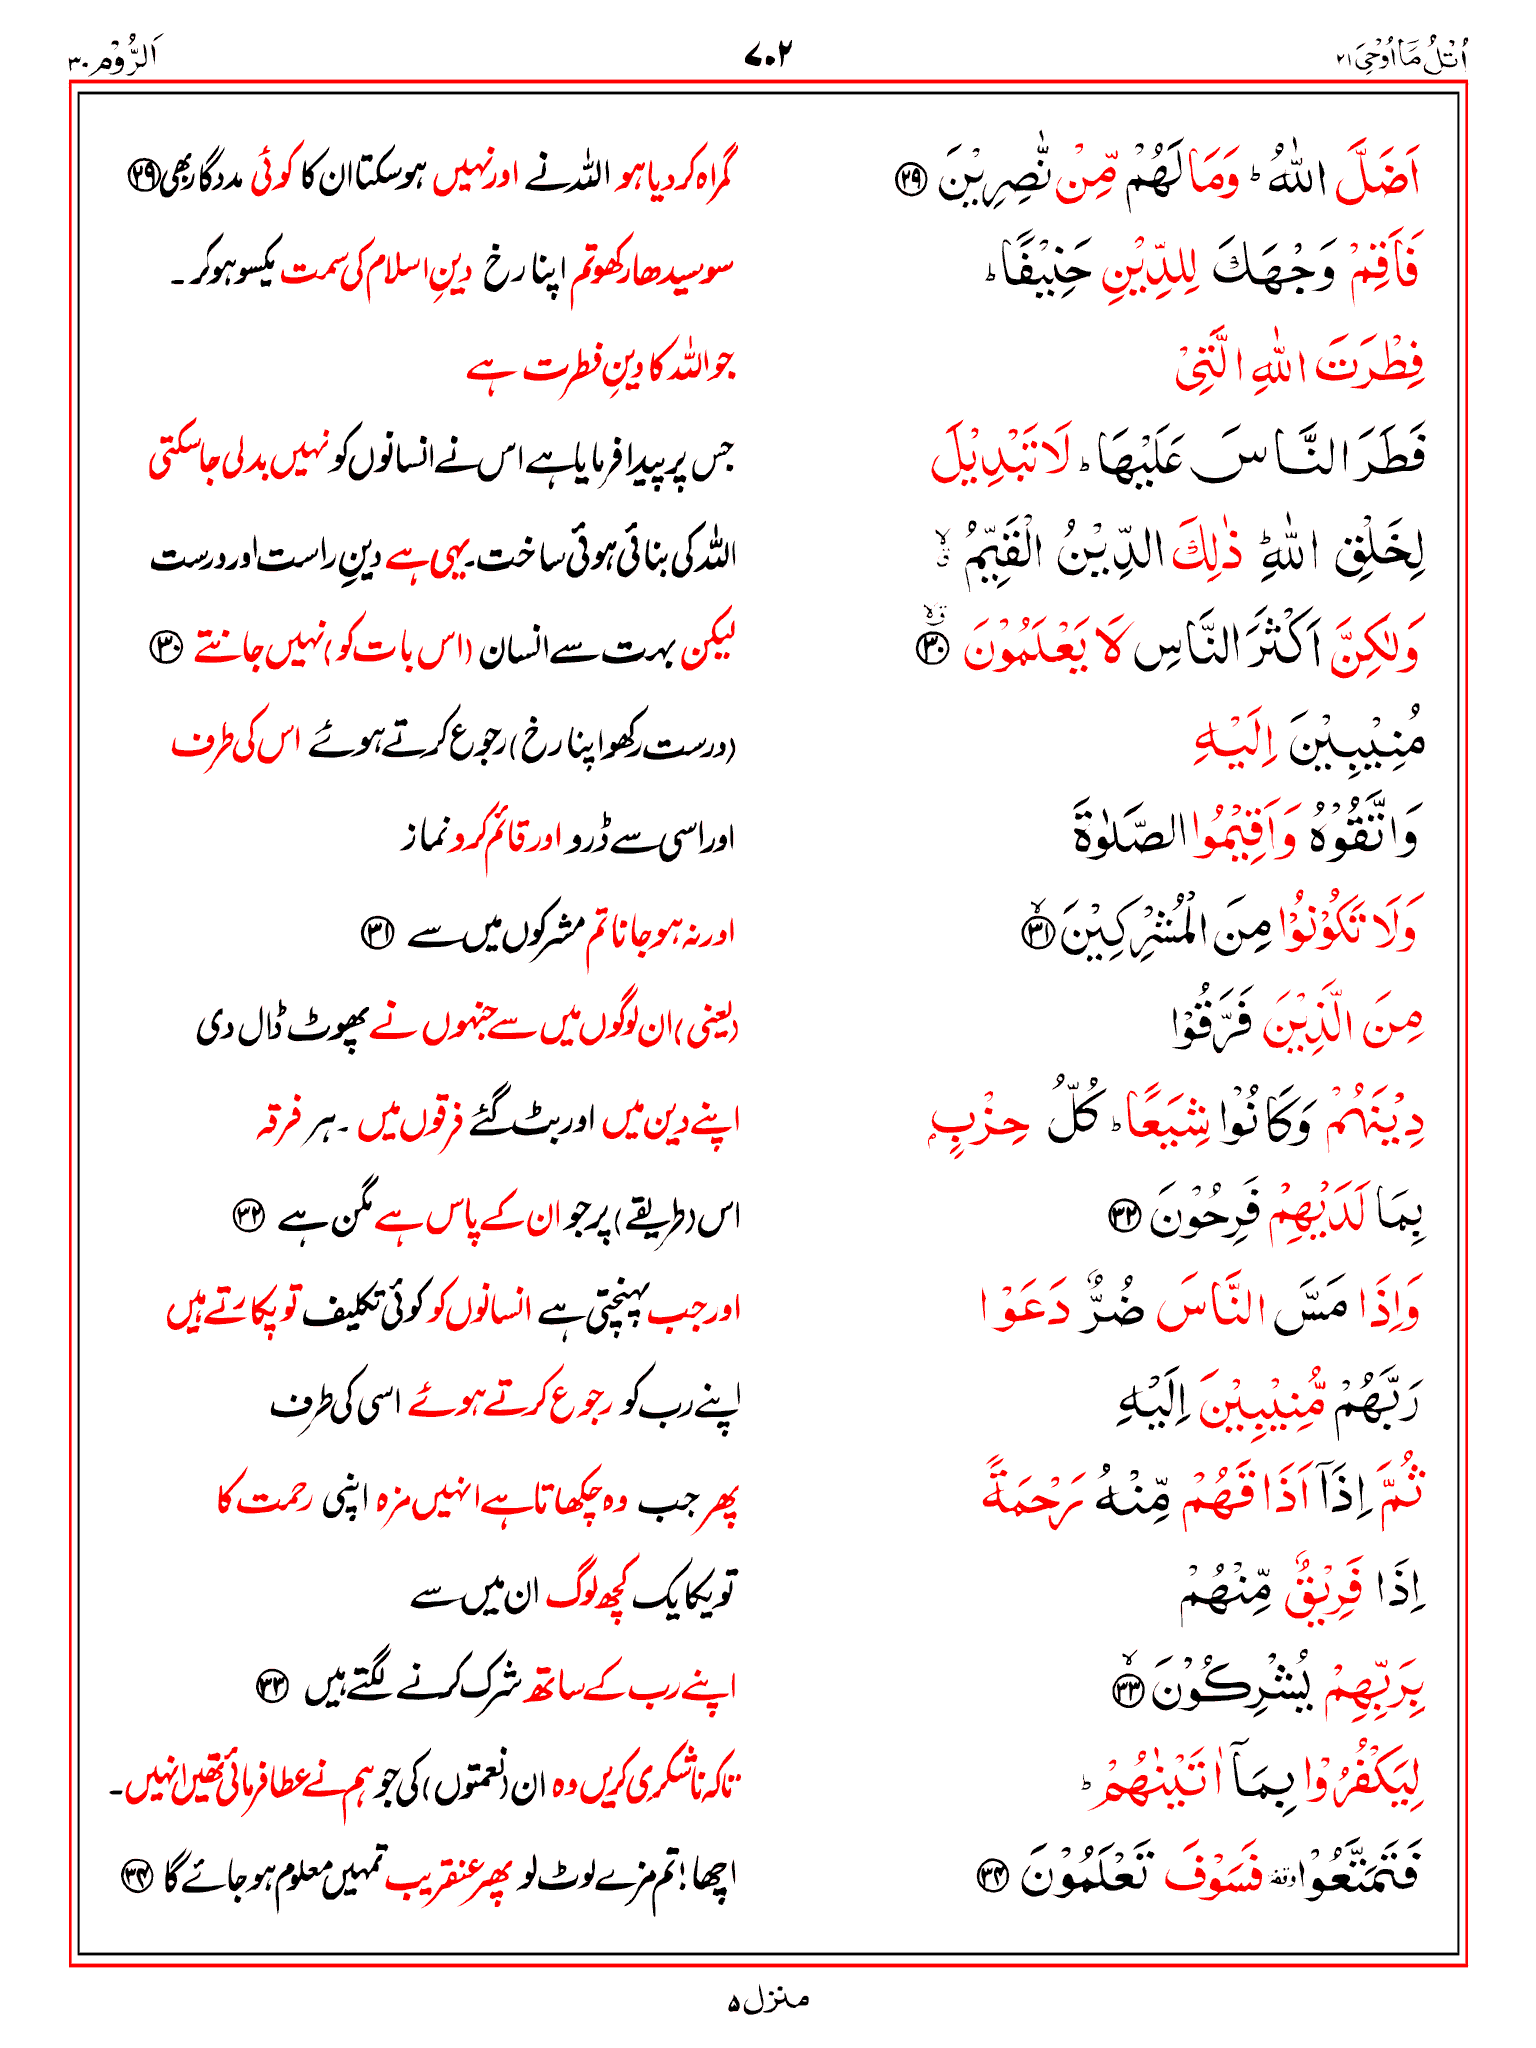 اُتْلُ مَآ اُوْحِیَ ۲۱
۷۰۲
اَلرُّوْم ۳۰
اَضَلَّ اللّٰهُ ؕ وَمَا لَهُمْ مِّنْ نّٰصِرِیْنَ ۲۹
گمراہ کردیا ہو اللہ نے اور نہیں ہوسکتا ان کا کوئی مددگار بھی ۲۹
فَاَقِمْ وَجْهَكَ لِلدِّیْنِ حَنِیْفًا ؕ
سو سیدھا رکھو تم اپنا رخ دینِ اسلام کی سمت یکسو ہو کر ۔
فِطْرَتَ اللّٰهِ الَّتِیْ
جو اللہ کا دینِ فطرت ہے
فَطَرَ النَّاسَ عَلَیْهَا ؕ لَا تَبْدِیْلَ
جس پر پیدا فرمایا ہے اس نے انسانوں کو نہیں بدلی جاسکتی
لِخَلْقِ اللّٰهِ ؕ ذٰلِكَ الدِّیْنُ الْقَیِّمُ ۙۗ
اللہ کی بنائی ہوئی ساخت۔ یہی ہے دینِ راست اور درست
وَلٰكِنَّ اَكْثَرَ النَّاسِ لَا یَعْلَمُوْنَ ۳۰
لیکن بہت سے انسان (اس بات کو) نہیں جانتے ۳۰
مُنِیْبِیْنَ اِلَیْهِ
(درست رکھو اپنا رخ) رجوع کرتے ہوئے اس کی طرف
وَاتَّقُوْهُ وَاَقِیْمُوا الصَّلٰوةَ
اور اسی سے ڈرو اور قائم کرو نماز
وَلَا تَكُوْنُوْا مِنَ الْمُشْرِكِیْنَ ۙ ۳۱
اور نہ ہو جانا تم مشرکوں میں سے ۳۱
مِنَ الَّذِیْنَ فَرَّقُوْا
(یعنی) ان لوگوں میں سے جنہوں نے پھوٹ ڈال دی
دِیْنَهُمْ وَكَانُوْا شِیَعًا ؕ كُلُّ حِزْبٍۭ
اپنے دین میں اور بٹ گئے فرقوں میں ۔ ہر فرقہ
بِمَا لَدَیْهِمْ فَرِحُوْنَ ۳۲
اس (طریقے) پر جو ان کے پاس ہے مگن ہے ۳۲
وَاِذَا مَسَّ النَّاسَ ضُرٌّ دَعَوْا
اور جب پہنچتی ہے انسانوں کو کوئی تکلیف تو پکارتے ہیں
رَبَّهُمْ مُّنِیْبِیْنَ اِلَیْهِ
اپنے رب کو رجوع کرتے ہوئے اسی کی طرف
ثُمَّ اِذَاۤ اَذَاقَهُمْ مِّنْهُ رَحْمَةً
پھر جب وہ چکھاتا ہے انہیں مزہ اپنی رحمت کا
اِذَا فَرِیْقٌ مِّنْهُمْ
تو یکایک کچھ لوگ ان میں سے
بِرَبِّهِمْ یُشْرِكُوْنَ ۙ ۳۳
اپنے رب کے ساتھ شرک کرنے لگتے ہیں ۳۳
لِیَكْفُرُوْا بِمَاۤ اٰتَیْنٰهُمْ ؕ
تاکہ ناشکری کریں وہ ان (نعمتوں) کی جو ہم نے عطا فرمائی تھیں انہیں ۔
فَتَمَتَّعُوْا ۥ وقفۃ فَسَوْفَ تَعْلَمُوْنَ ۳۴
اچھا! تم مزے لوٹ لو پھر عنقریب تمہیں معلوم ہو جائے گا ۳۴
منزل ۵